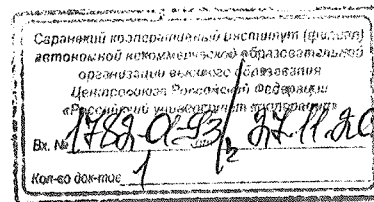 Саранский кооперативный институт (филиал)
автономной некоммерческой образовательной
организации высшего образования
Центросоюза Российской Федерации
«Российский университет кооперации»
Вх. № 27.11.20
Кол-во док-тов 1